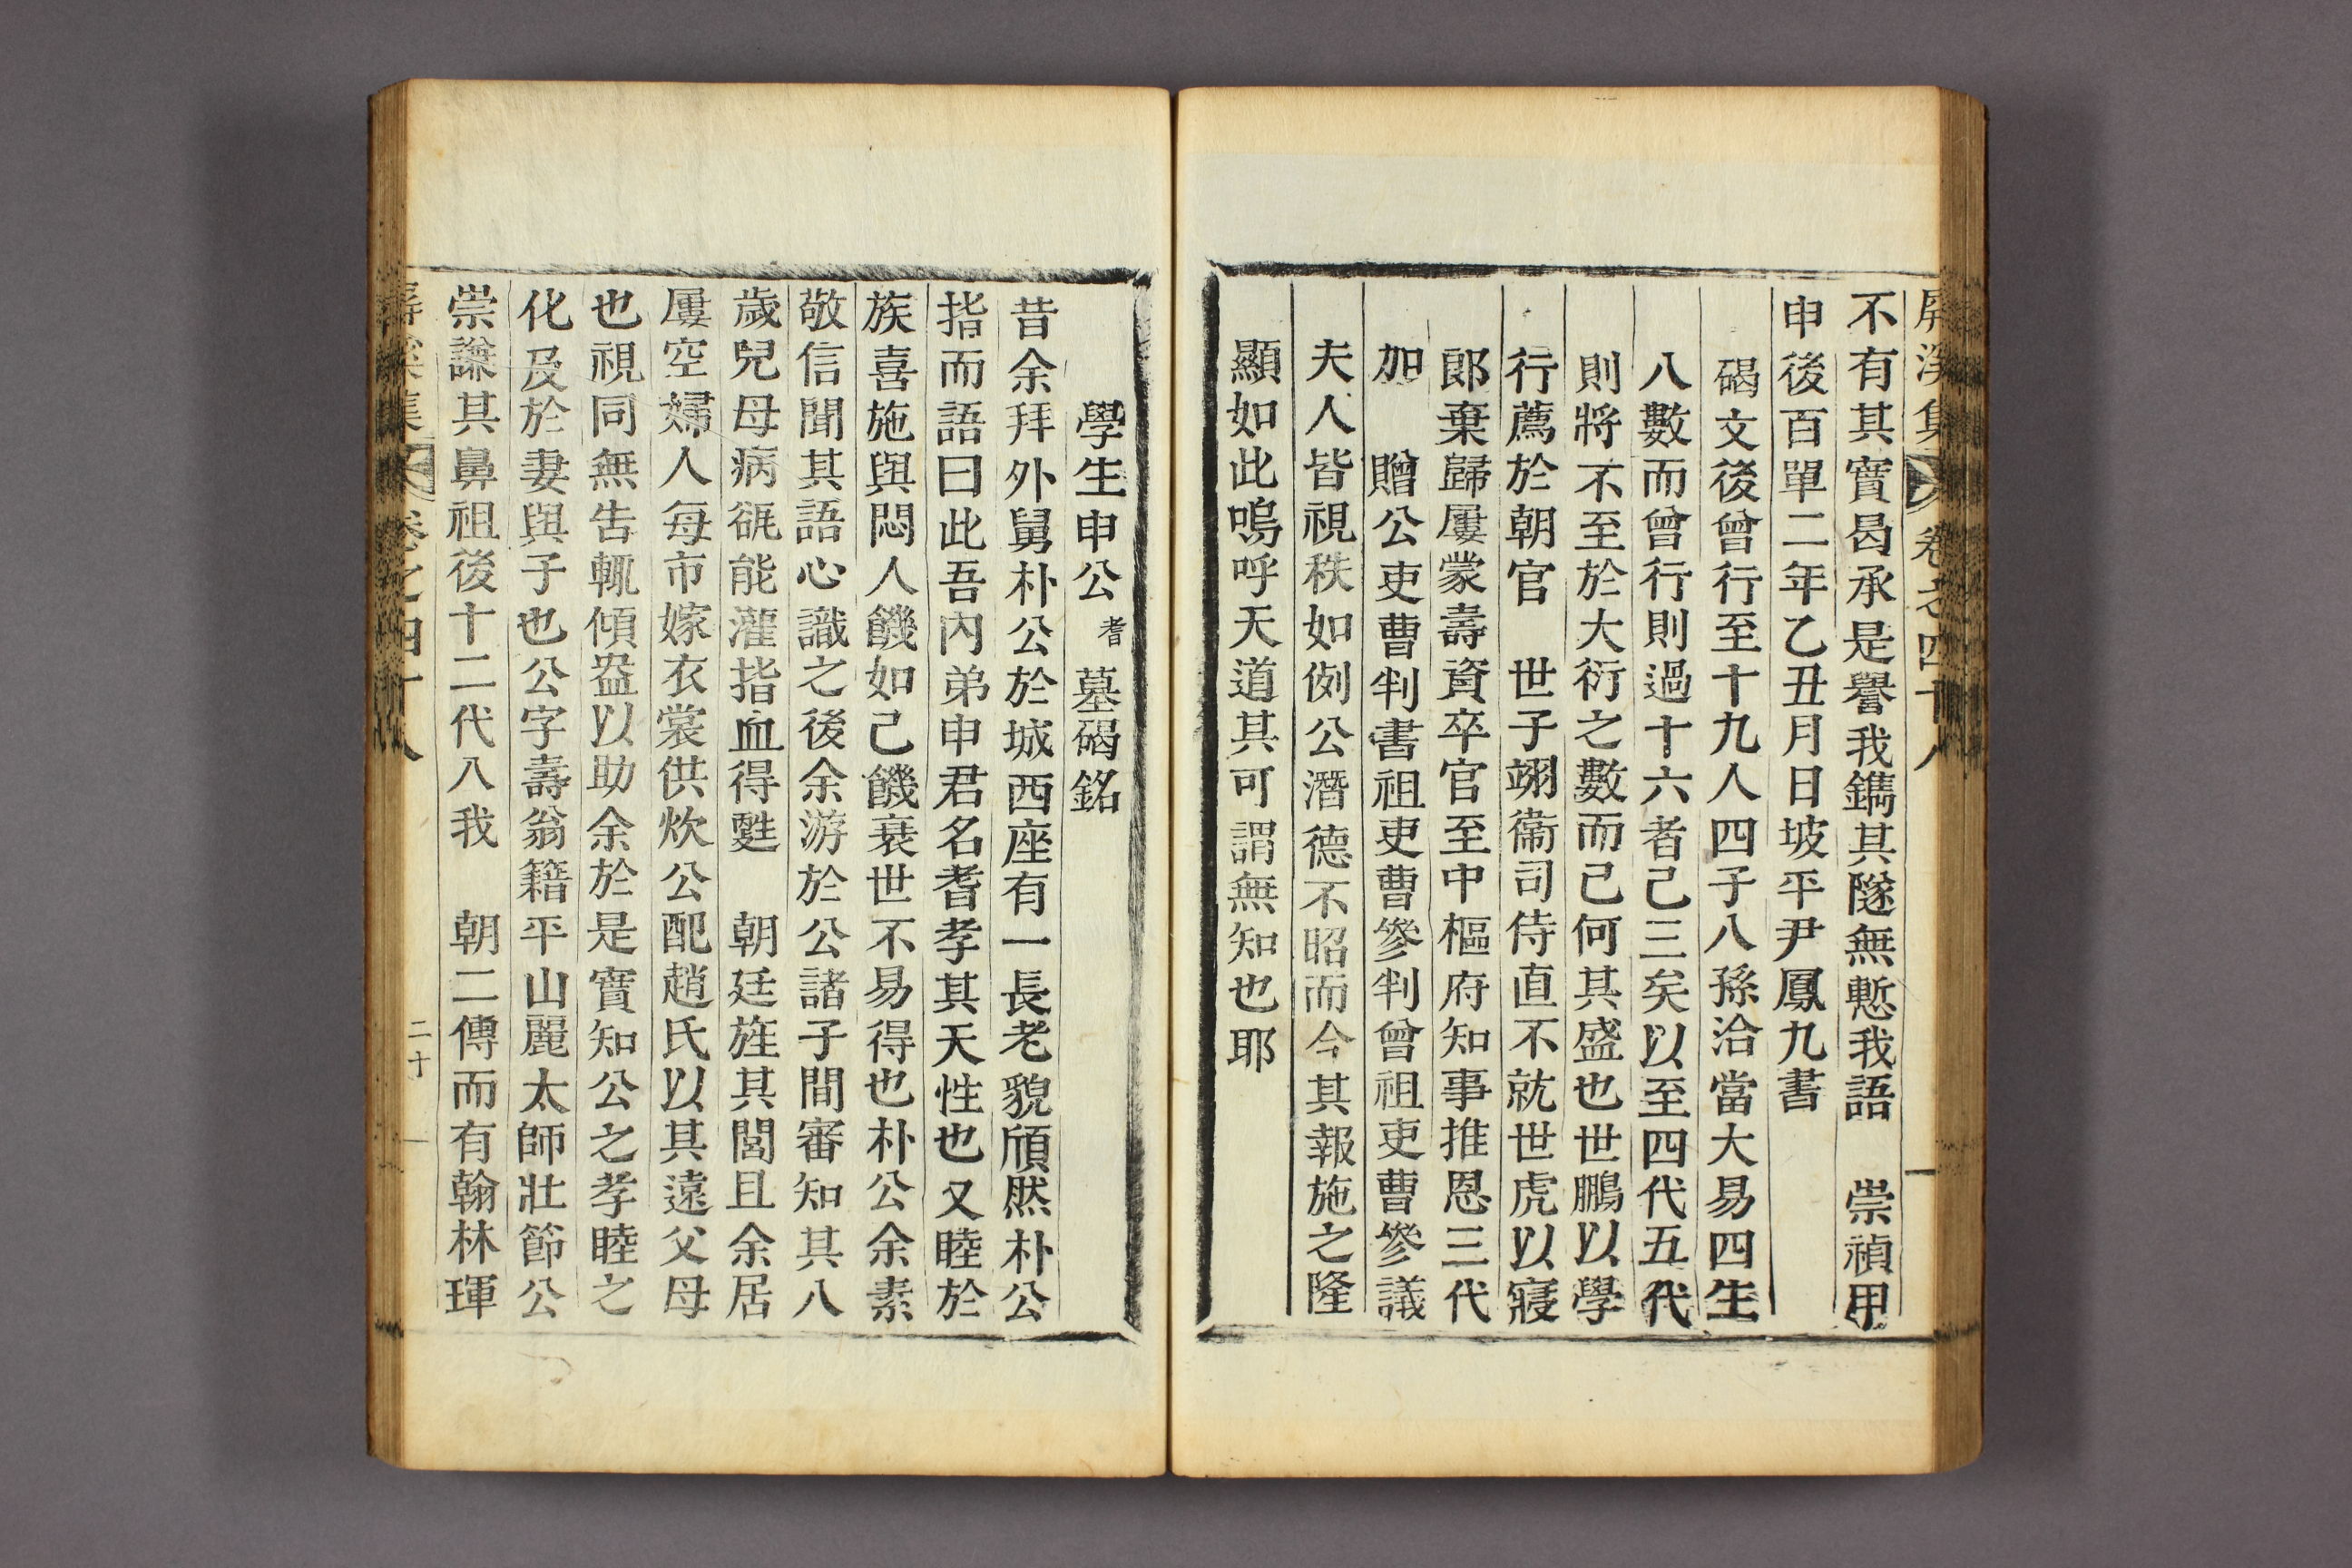 屛溪集 卷之四十八
不有其實曷承是譽我鐫其隧無慙我語 崇禎甲
申後百單二年乙丑月日坡平尹鳳九書
碣文後曾行至十九人四子八孫洽當大易四生
八數而曾行則過十六者已三矣以至四代五代
則將不至於大衍之數而已何其盛也世鵬以學
行薦於朝官 世子翊衛司侍直不就世虎以寢
郞棄歸屢蒙壽資卒官至中樞府知事推恩三代
加 贈公吏曹判書祖吏曹參判曾祖吏曹參議
夫人皆視秩如例公潛德不昭而今其報施之隆
顯如此嗚呼天道其可謂無知也耶
學生申公耆墓碣銘
昔余拜外舅朴公於城西座有一長老貌頎然朴公
指而語曰此吾內弟申君名耆孝其天性也又睦於
族喜施與悶人饑如己饑衰世不易得也朴公余素
敬信聞其語心識之後余游於公諸子間審知其八
歲兒母病㼝能灌指血得甦 朝廷旌其閭且余居
屢空婦人每市嫁衣裳供炊公配趙氏以其遠父母
也視同無告輒傾盎以助余於是實知公之孝睦之
化及於妻與子也公字壽翁籍平山麗太師壯節公
崇謙其鼻祖後十二代入我 朝二傳而有翰林琿
屛溪集 卷之四十八 二十